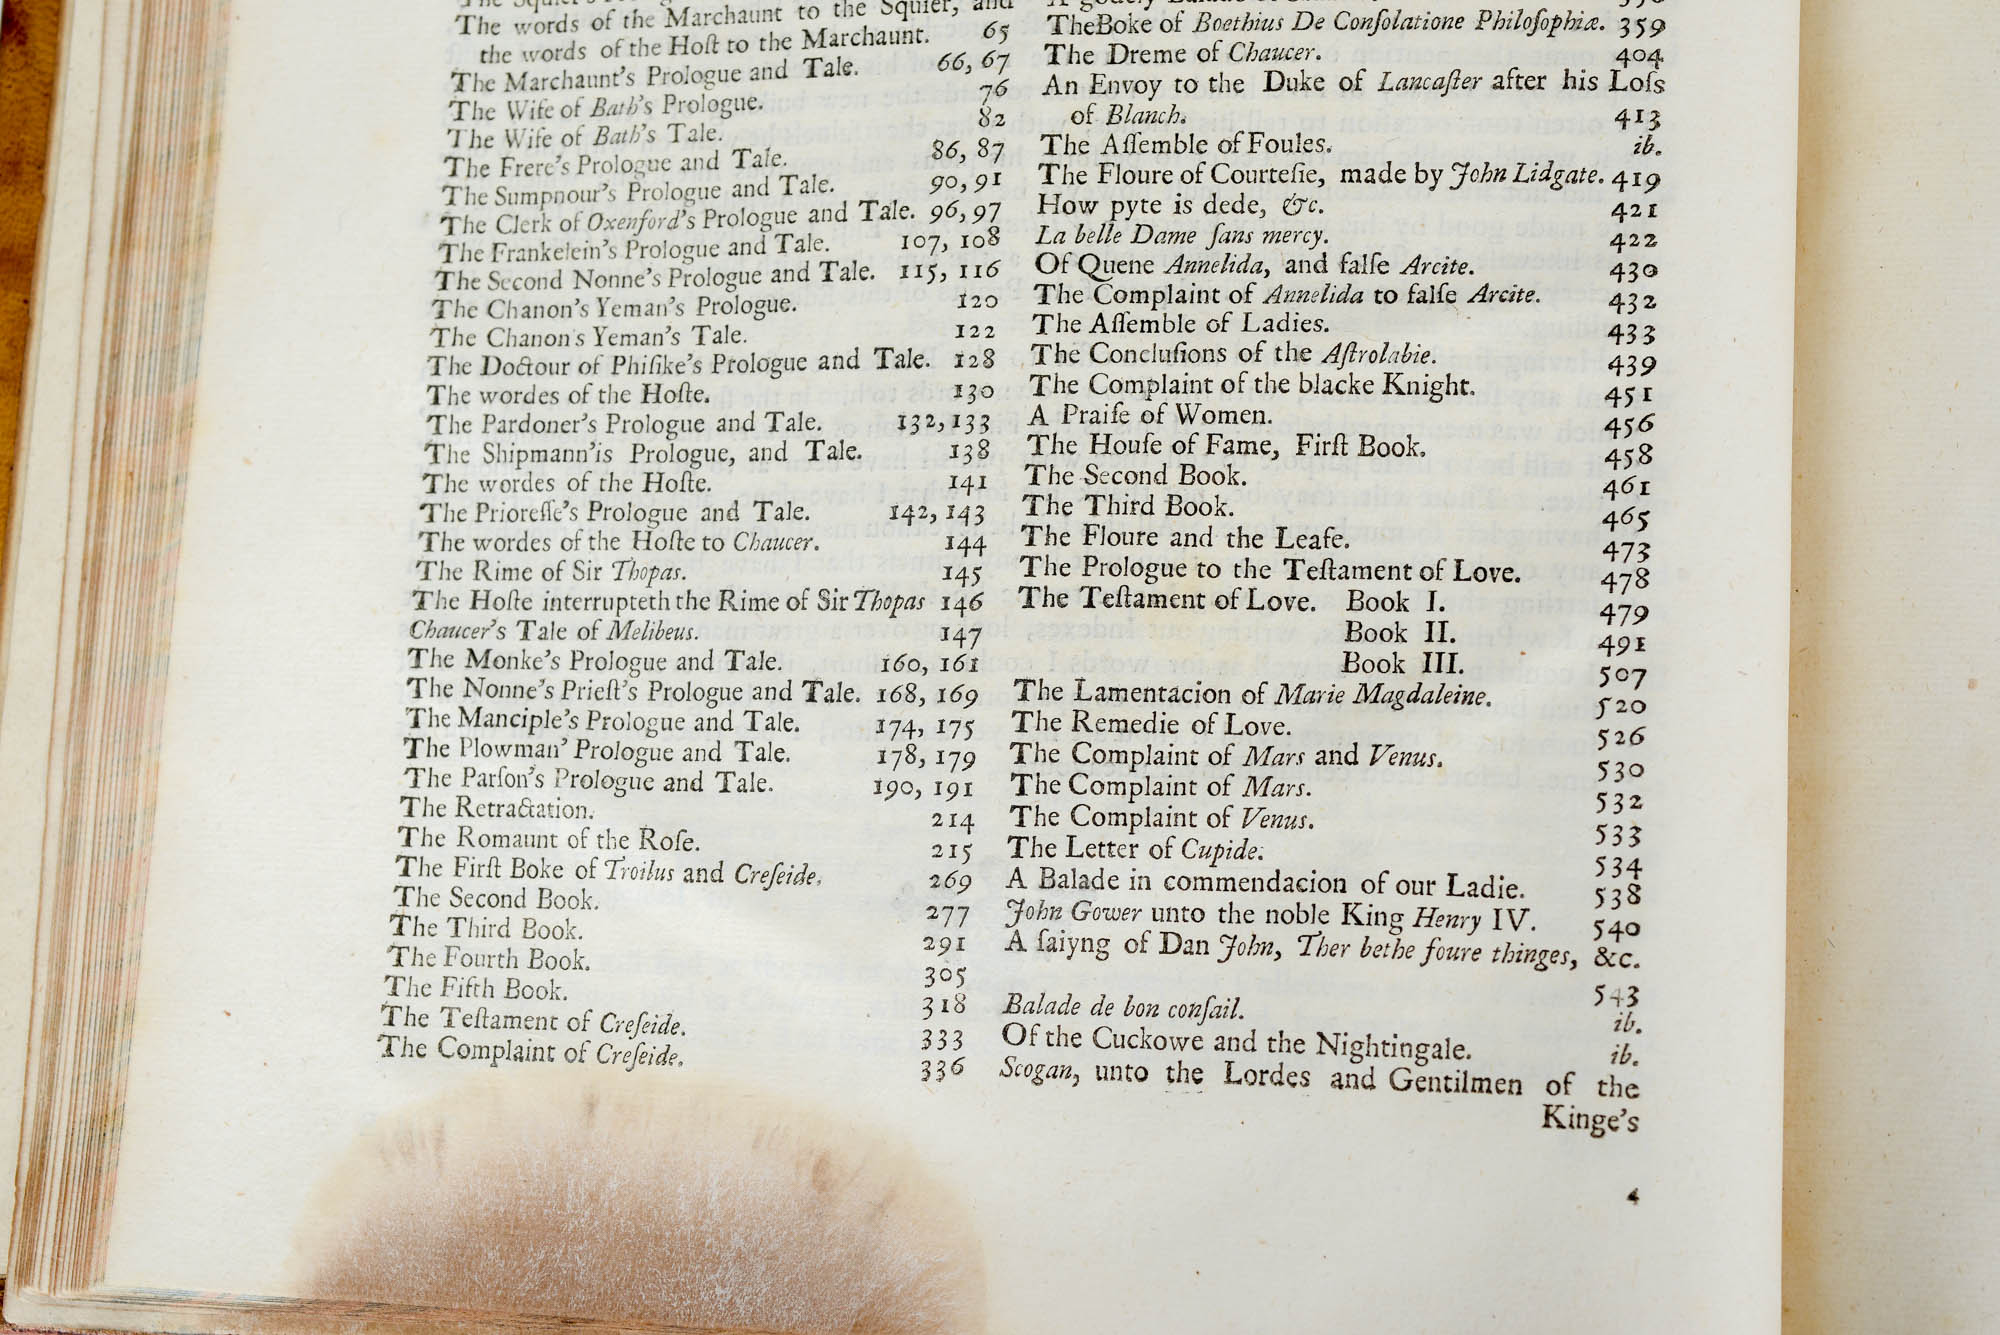 The Squier's
The words of the Marchaunt to the Squier, and
the words of the Hoſt to the Marchaunt. 65
The Marchaunt's Prologue and Tale. 66, 67
The Wife of Bath's Prologue. 76
The Wife of Bath's Tale. 82
The Frere's Prologue and Tale. 86, 87
The Sumpnour's Prologue and Tale. 90, 91
The Clerk of Oxenford's Prologue and Tale. 96, 97
The Frankelein's Prologue and Tale. 107, 108
The Second Nonne's Prologue and Tale. 115, 116
The Chanon's Yeman's Prologue. 120
The Chanon's Yeman's Tale. 122
The Doctour of Phiſike's Prologue and Tale. 128
The wordes of the Hoſte. 130
The Pardoner's Prologue and Tale. 132, 133
The Shipmann'is Prologue, and Tale. 138
The wordes of the Hoſte. 141
The Prioreſſe's Prologue and Tale. 142, 143
The wordes of the Hoſte to Chaucer. 144
The Rime of Sir Thopas. 145
The Hoſte interrupteth the Rime of Sir Thopas 146
Chaucer's Tale of Melibeus. 147
The Monke's Prologue and Tale. 160, 161
The Nonne's Prieſt's Prologue and Tale. 168, 169
The Manciple's Prologue and Tale. 174, 175
The Plowman' Prologue and Tale. 178, 179
The Parſon's Prologue and Tale. 190, 191
The Retractation. 214
The Romaunt of the Roſe. 215
The Firſt Boke of Troilus and Creſeide. 269
The Second Book. 277
The Third Book. 291
The Fourth Book. 305
The Fifth Book. 318
The Teſtament of Creſeide. 333
The Complaint of Creſeide. 336
The Boke of Boethius De Conſolatione Philoſophiæ. 359
The Dreme of Chaucer. 404
An Envoy to the Duke of Lancaſter after his Loſs
of Blanch. 413
The Aſſemble of Foules. ib.
The Floure of Courteſie, made by John Lidgate. 419
How pyte is dede, &c. 421
La belle Dame ſans mercy. 422
Of Quene Annelida, and falſe Arcite. 430
The Complaint of Annelida to falſe Arcite. 432
The Aſſemble of Ladies. 433
The Concluſions of the Aſtrolabie. 439
The Complaint of the blacke Knight. 451
A Praiſe of Women. 456
The Houſe of Fame, Firſt Book. 458
The Second Book. 461
The Third Book. 465
The Floure and the Leafe. 473
The Prologue to the Teſtament of Love. 478
The Teſtament of Love. Book I. 479
Book II. 491
Book III. 507
The Lamentacion of Marie Magdaleine. 520
The Remedie of Love. 526
The Complaint of Mars and Venus. 530
The Complaint of Mars. 532
The Complaint of Venus. 533
The Letter of Cupide. 534
A Balade in commendacion of our Ladie. 538
John Gower unto the noble King Henry IV. 540
A ſaiyng of Dan John, Ther bethe foure thinges, &c.
543
Balade de bon conſail. ib.
Of the Cuckowe and the Nightingale. ib.
Scogan, unto the Lordes and Gentilmen of the
Kinge's
4